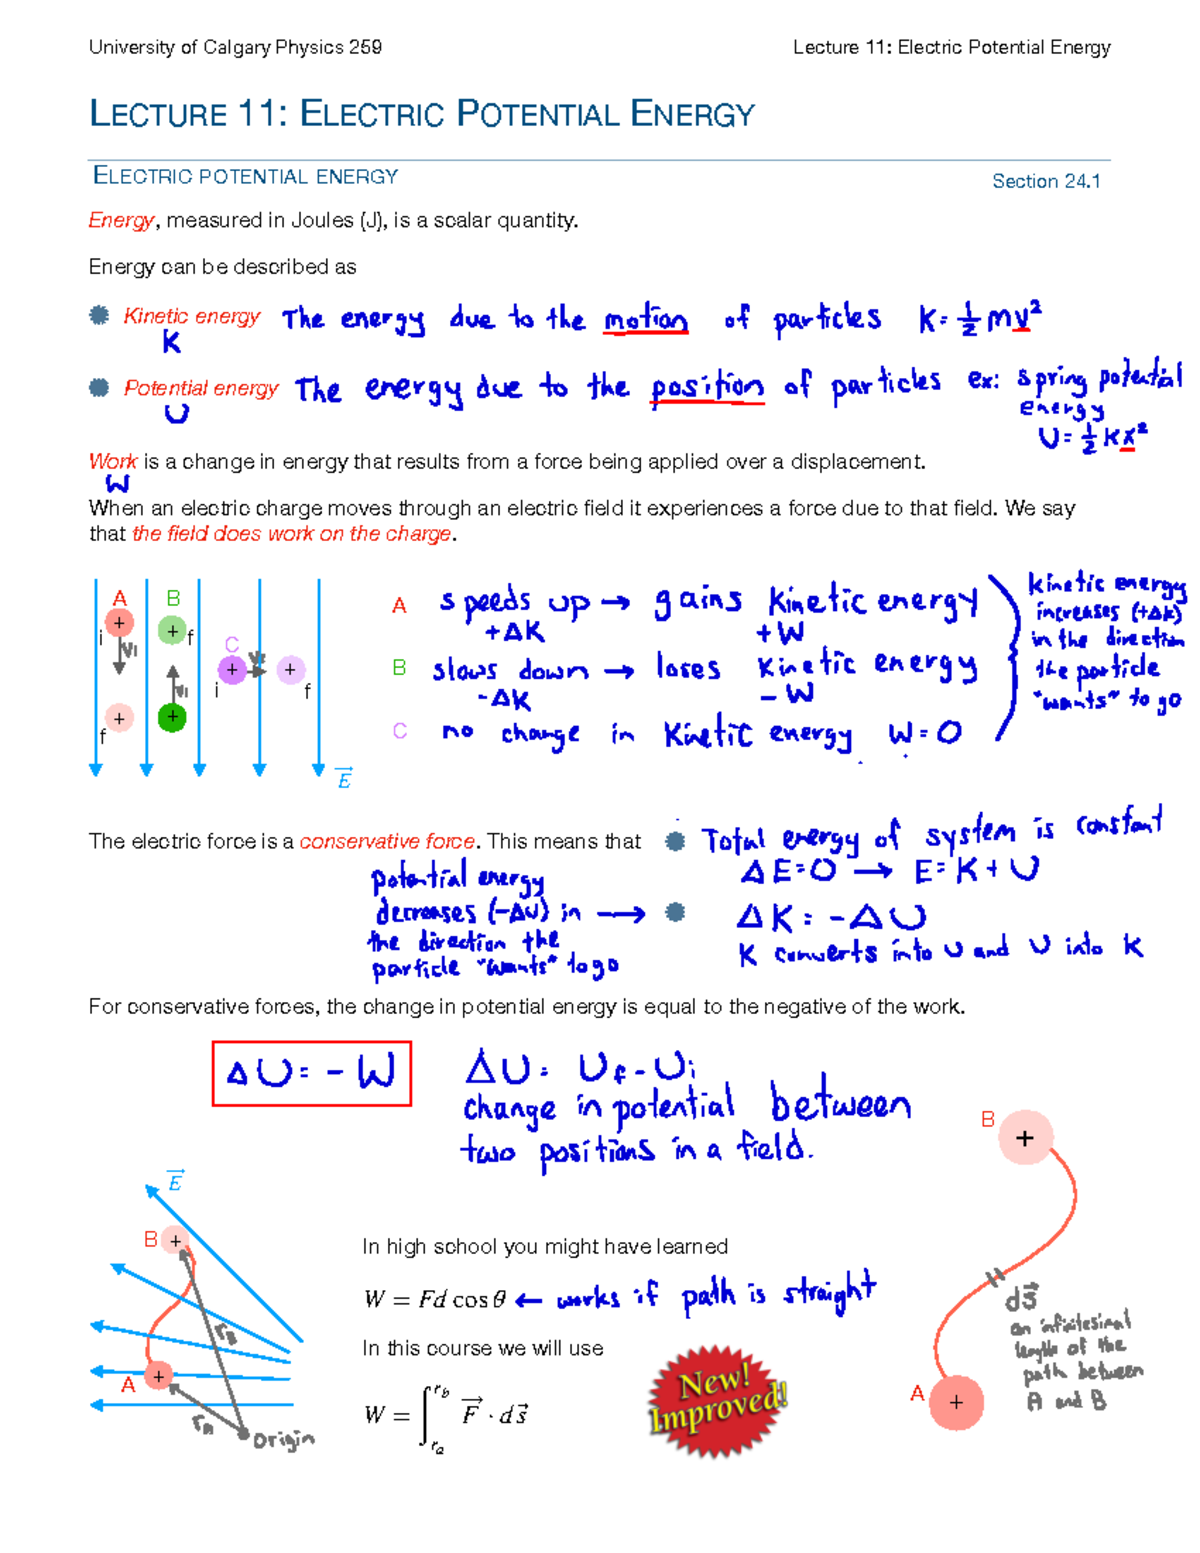 University of Calgary Physics 259 Lecture 11: Electric Potential Energy
LECTURE 11: ELECTRIC POTENTIAL ENERGY
ELECTRIC POTENTIAL ENERGY Section 24.1
Energy, measured in Joules (J), is a scalar quantity.
Energy can be described as
Kinetic energy The energy due to the motion of particles K = 1/2 mv²
K
Potential energy The energy due to the position of particles ex: spring potential
energy
U
U = 1/2 kx²
Work is a change in energy that results from a force being applied over a displacement.
W
When an electric charge moves through an electric field it experiences a force due to that field. We say
that the field does work on the charge.
A B
+ + f
i Vi
C
+ V +
i f
Vi
+ +
f
E⃗
A speeds up → gains kinetic energy
+ΔK +W
B slows down → loses kinetic energy
-ΔK -W
C no change in kinetic energy W = 0
kinetic energy
increases (+ΔK)
in the direction
the particle
"wants" to go
The electric force is a conservative force. This means that Total energy of system is constant
ΔE=0 → E=K+U
potential energy
decreases (-ΔU) in →
the direction the
particle "wants" to go
ΔK = -ΔU
K converts into U and U into K
For conservative forces, the change in potential energy is equal to the negative of the work.
ΔU = -W
ΔU = Uf - Ui
change in potential between
two positions in a field.
E⃗
B +
rB
A +
rA
Origin
In high school you might have learned
W = Fd cos θ ← works if path is straight
In this course we will use
W = ∫ᵣₐʳᵇ F⃗ · ds⃗
New!
Improved!
B +
ds⃗
an infinitesimal
length of the
path between
A and B
A +